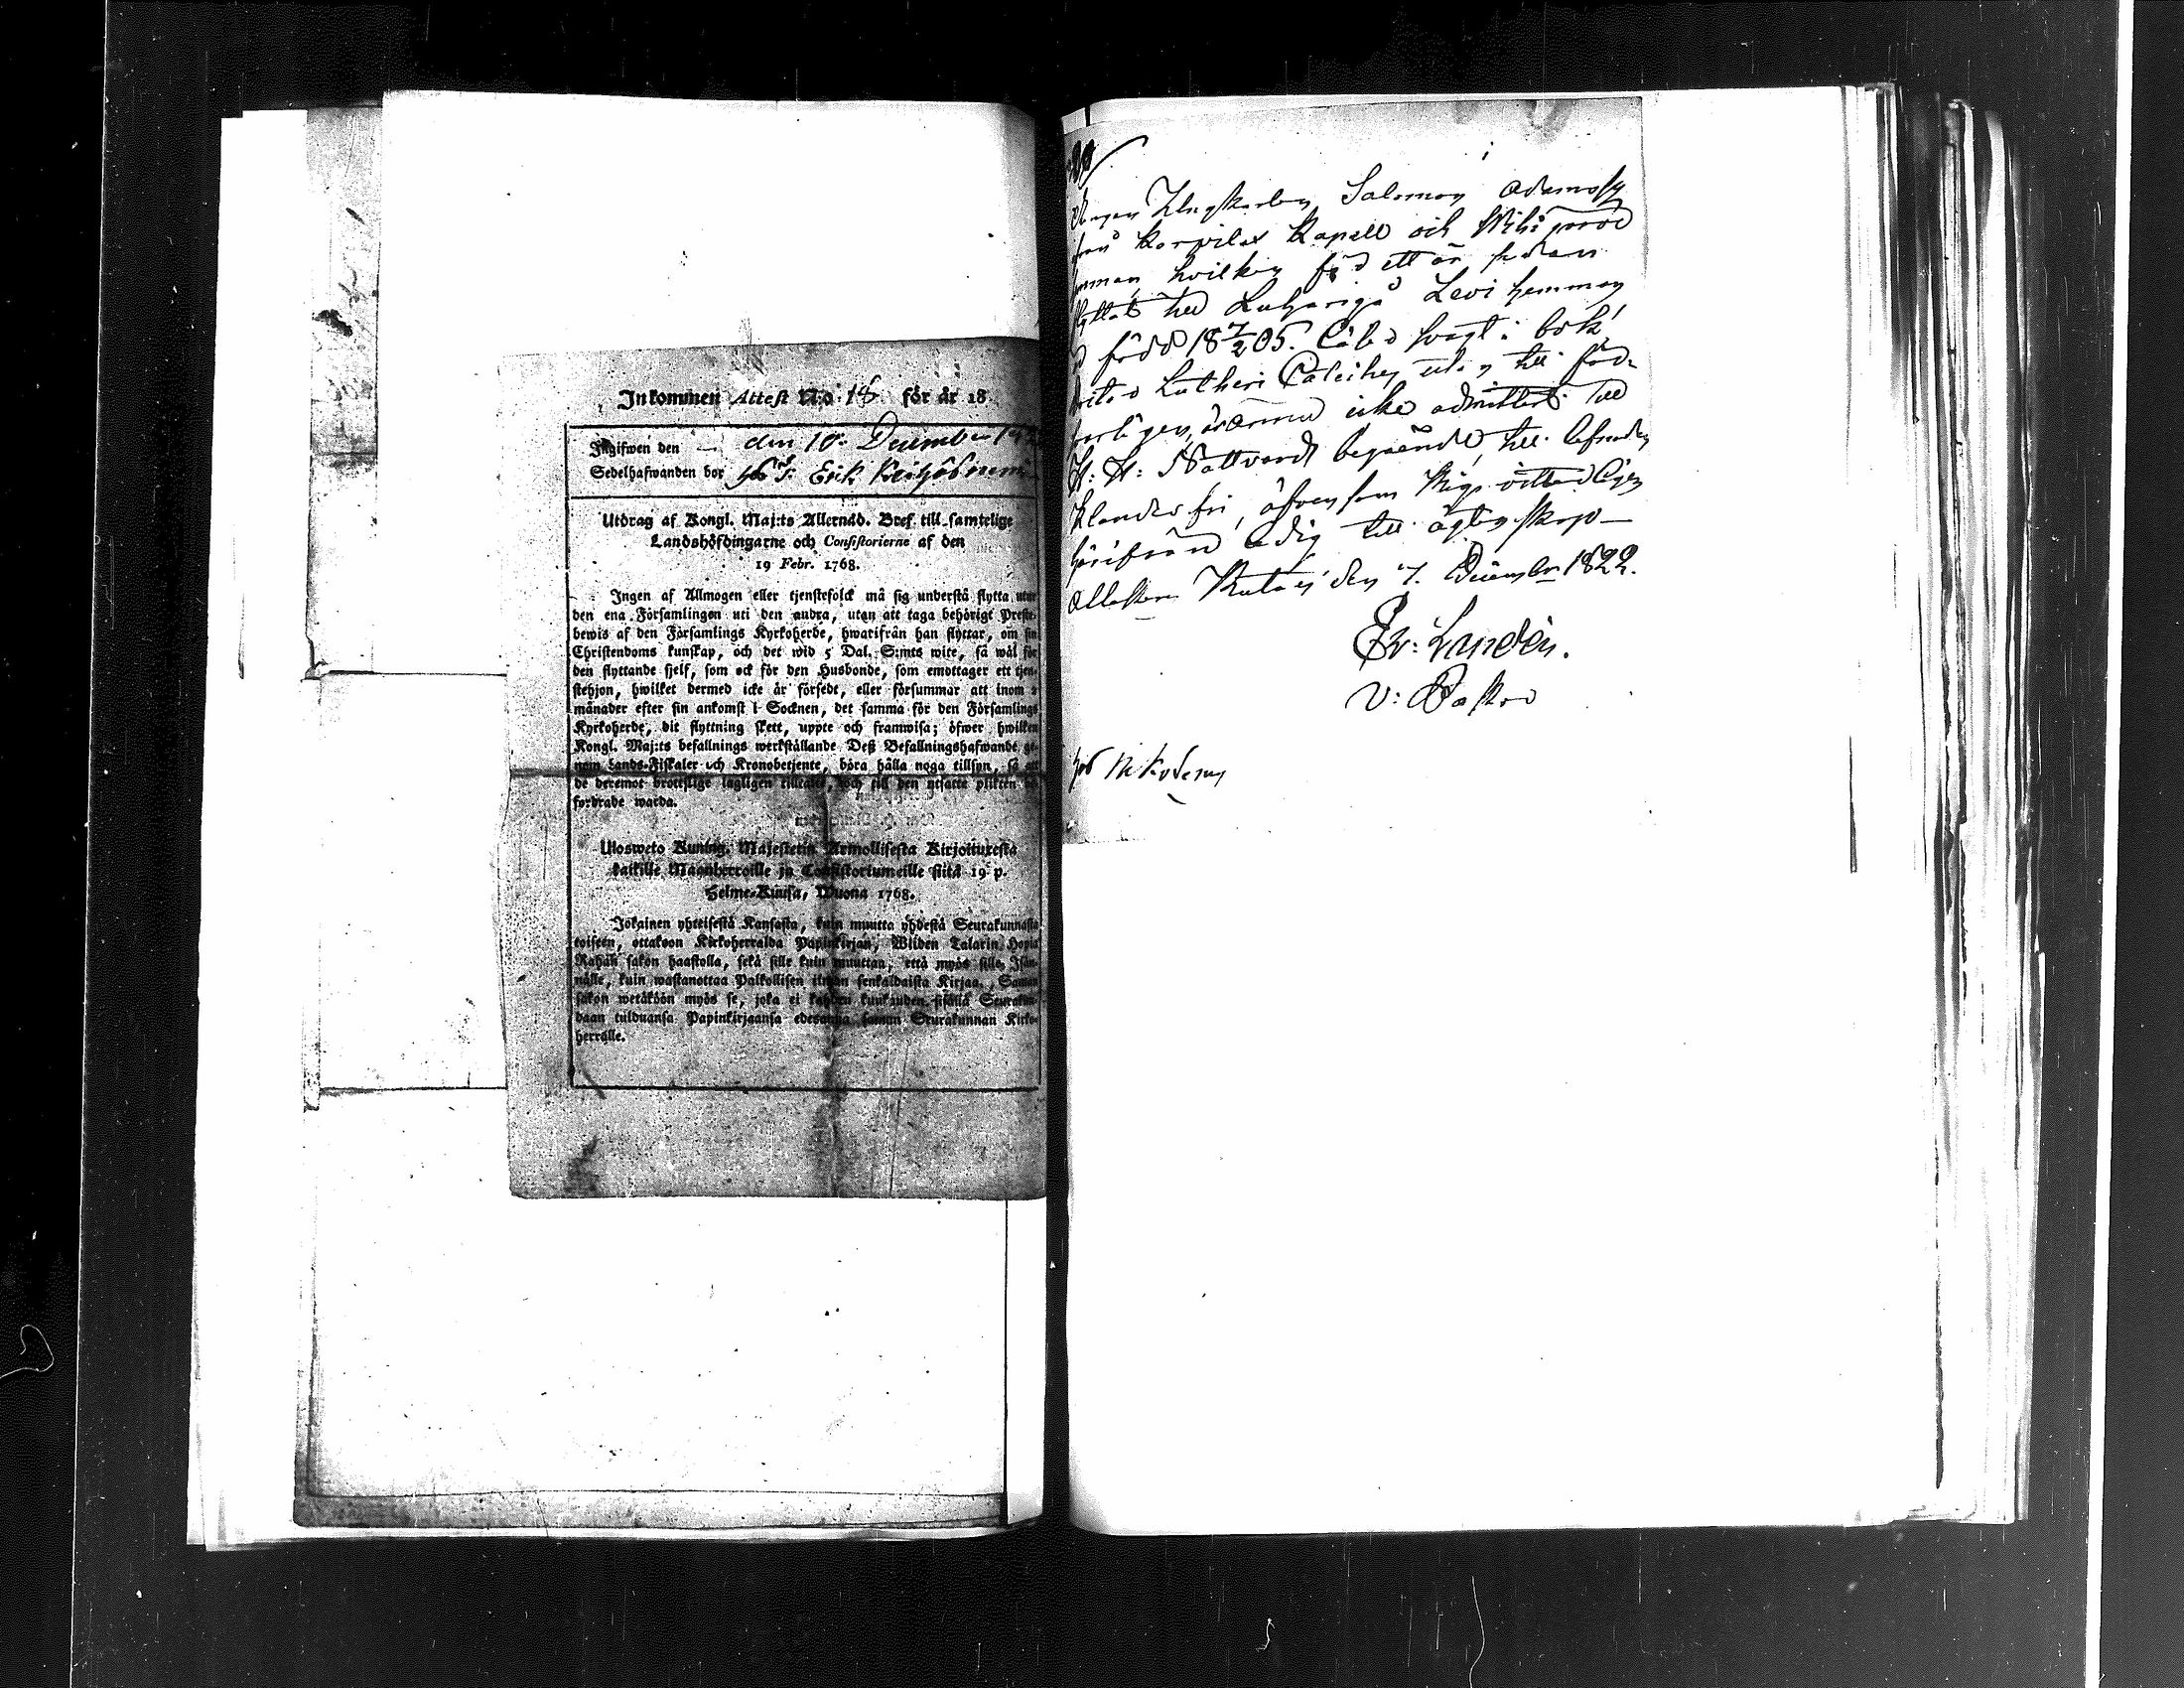 Inkommen Attest N:o 18 för år 18
Ingifwen den — den 10. December
Sedelhafwanden bor hos Erik
Utdrag af Kongl. Maj:ts Allernåd. Bref till samtelige
Landshöfdingarne och Consistorierne af den
19 Febr. 1768.
Ingen af Allmogen eller tjenstefolck må sig understå flytta utur
den ena Församlingen uti den andra, utan att taga behörigt Preste-
bewis af den Församlings Kyrkoherde, hwarifrån han flyttar, om sin
Christendoms kunskap, och det wid 5 Dal. S:mts wite, så wäl för
den flyttande sjelf, som ock för den Husbonde, som emottager ett tjen-
stehjon, hwilket dermed icke är försedt, eller försummar att inom
månader efter sin ankomst i Socknen, det samma för den Församlings
Kyrkoherde, dit flyttning skett, uppte och framwisa; öfwer hwilken
Kongl. Maj:ts befallnings werkställande Deß Befallningshafwande ge-
nom Lands-Fiskaler och Kronobetjente, böra hålla noga tillsyn, så att
de deremot brottslige lagligen tilltalas, och till den utsatte plikten
fordrade warda.
Ulosweto Kuning. Majestetin Armollisesta Kirjoituxesta
kaikille Maanherroille ja Consistoriumeille siitä 19 p.
Helme-Kuusa, Wuona 1768.
Jokainen yhteisestä Kansasta, kuin muutta yhdestä Seurakunnasta
toiseen, ottakoon Kirkoherralda Papinkirjan, Wiiden Talarin Hopia
Rahan sakon haastolla, sekä sille kuin muuttaa, että myös sille Isän-
nälle, kuin wastanottaa Palkollisen ilman senkaldaista Kirjaa. Saman
sakon wetäköön myös se, joka ei kahden kuukauden sisällä Seurakun-
daan tulduansa Papinkirjaansa edesanna saman Seurakunnan Kirko-
herralle.
Salomon Adamsson
från Korpilax Kapell och
hemman, hvilken för ett år sedan
flyttat till Luhanga Levi hemman
är född 18 7/2 05. Läser svagt i bok
Lutheri Cateches
ännu icke admitterad till
H: H: Nattvards begående, till lefnaden
klanderfri, äfvensom vitterligen
härifrån ledig till ägtenskap —
attesteras den 7. December 1822.
Er: Lundén.
V: Pastor
hos Nikodemus